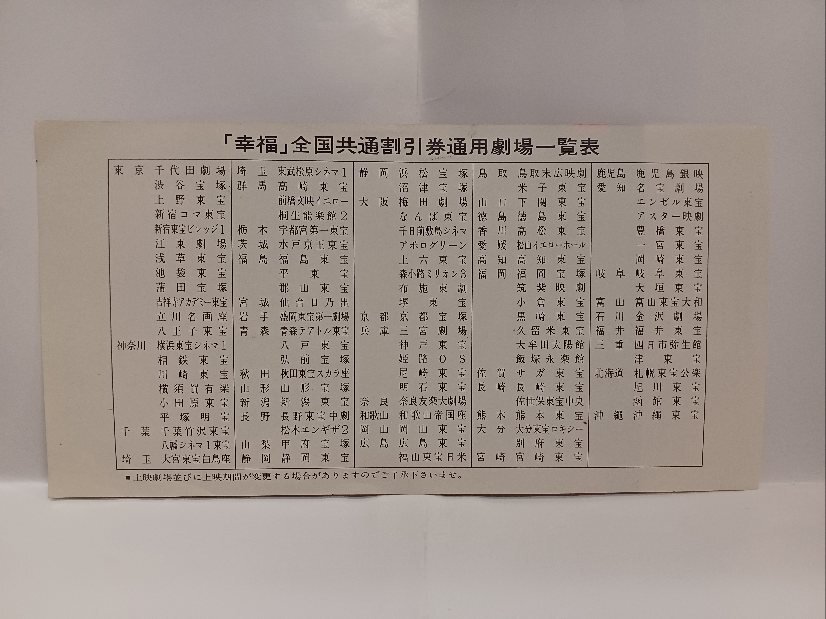 「幸福」全国共通割引券通用劇場一覧表
東京 千代田劇場
渋谷宝塚
上野東宝
新宿コマ東宝
新宿東宝ビレッジ1
江東劇場
浅草東宝
池袋東宝
蒲田宝塚
吉祥寺アカデミー東宝
立川名画座
八王子東宝
神奈川 横浜東宝シネマ1
相鉄東宝
川崎東宝
横須賀有楽
小田原東宝
平塚明宝
千葉 千葉竹沢東宝
八幡シネマ1東宝
埼玉 大宮東宝白鳥座
埼玉 東武松原シネマ1
群馬 高崎東宝
前橋文映イエロー
桐生能楽館2
栃木 宇都宮第一東宝
茨城 水戸京王東宝
福島 福島東宝
平東宝
郡山東宝
宮城 仙台日乃出
岩手 盛岡東宝第一劇場
青森 青森テアトル東宝
八戸東宝
弘前宝塚
秋田 秋田東宝スカラ座
山形 山形宝塚
新潟 新潟東宝
長野 長野東宝中劇
松本エンギザ2
山梨 甲府宝塚
静岡 静岡東宝
静岡 浜松宝塚
沼津宝塚
大阪 梅田劇場
なんば東宝
千日前敷島シネマ
アポログリーン
上六東宝
森小路ミリオン3
布施東劇
堺東宝
京都 京都宝塚
兵庫 三宮劇場
神戸東宝
姫路OS
尼崎東宝
明石東宝
奈良 奈良友楽大劇場
和歌山 和歌山帝国座
岡山 岡山東宝
広島 広島東宝
福山東宝日米
鳥取 鳥取末広映劇
米子東宝
山口 下関東宝
徳島 徳島東宝
香川 高松東宝
愛媛 松山イエローホール
高知 高知東宝
福岡 福岡宝塚
筑紫映劇
小倉東宝
黒崎東宝
久留米東宝
大牟田太陽館
飯塚永楽館
佐賀 サガ東宝
長崎 長崎東宝
佐世保東宝中央
熊本 熊本東宝
大分 大分東宝ロキシー
別府東宝
宮崎 宮崎東宝
鹿児島 鹿児島銀映
愛知 名宝劇場
エンゼル東宝
アスター映劇
豊橋東宝
一宮東宝
岡崎東宝
岐阜 岐阜東宝
大垣東宝
富山 富山東宝大和
石川 金沢劇場
福井 福井東宝
三重 四日市弥生館
津東宝
北海道 札幌東宝公楽
旭川東宝
函館東宝
沖縄 沖縄東宝
■上映劇場並びに上映期間が変更する場合がありますのでご了承下さいませ。